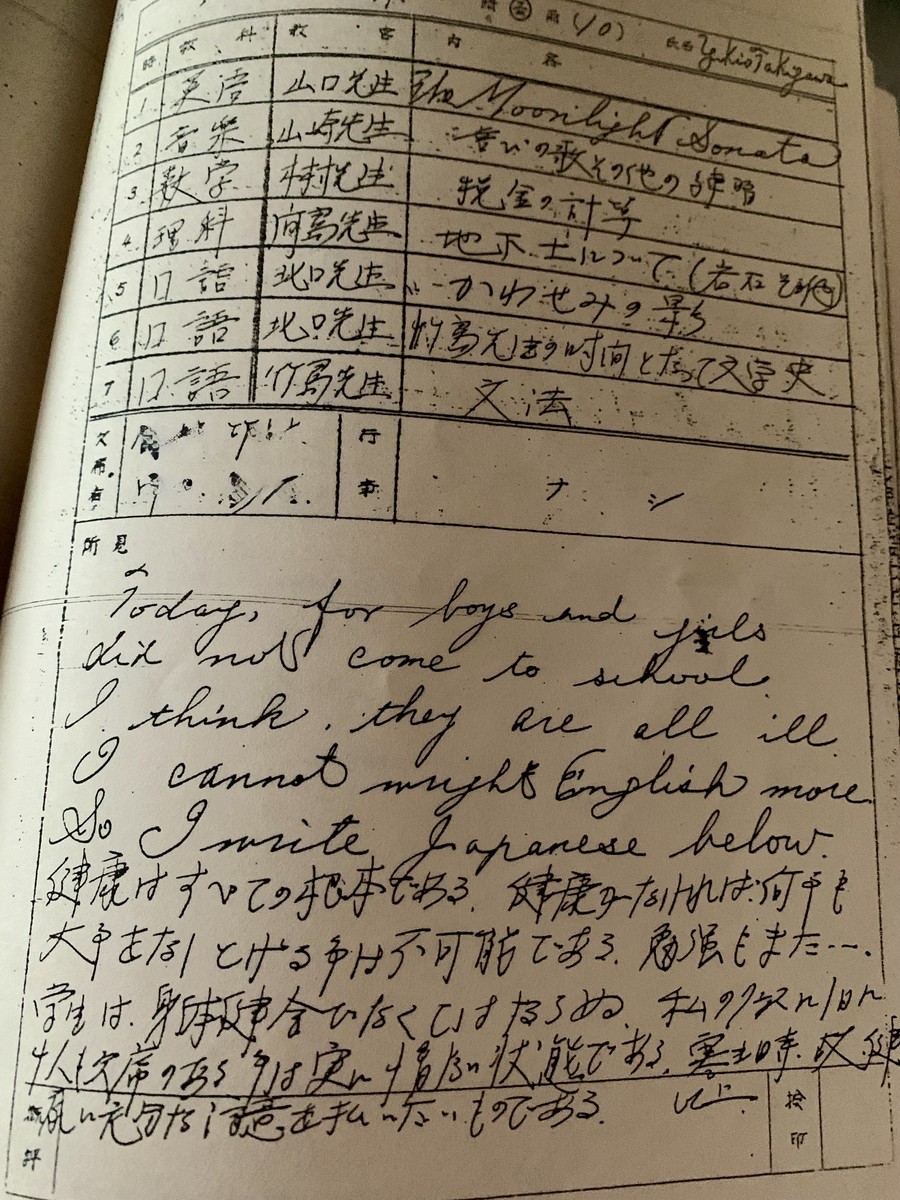 氏名 Yukio Takigawa
時 教科 教官 内容
1 英語 山口先生 The Moonlight Sonata
2 音楽 山崎先生 の歌その他の練習
3 数学 先生 税金の計算
4 理科 向島先生 地下土について(岩石その他)
5 口語 北口先生 かわせみの
6 口語 北口先生 竹島先生の時间となって文学史
7 口語 竹島先生 文法
欠席者 行事 ナシ
所見
Today, for boys and girls
did not come to school.
I think, they are all ill
I cannot wright English more
So I write Japanese below.
健康はすべての根本である。健康がなければ何事も
大事をなしとげる事は不可能である。勉強もまた…。
学生は、身体健全でなくてはならぬ。私のクラスに1日に
十人も欠席のある事は実に情ない状態である。寒い時故、健
康に充分な注意を払いたいものである。 以上
評 検印